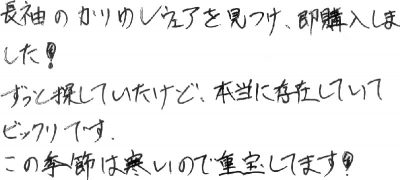 長袖のかりゆしウェアを見つけ、即購入しま
した!
ずっと探していたけど、本当に存在していて
ビックリです.
この季節は寒いので重宝してます!